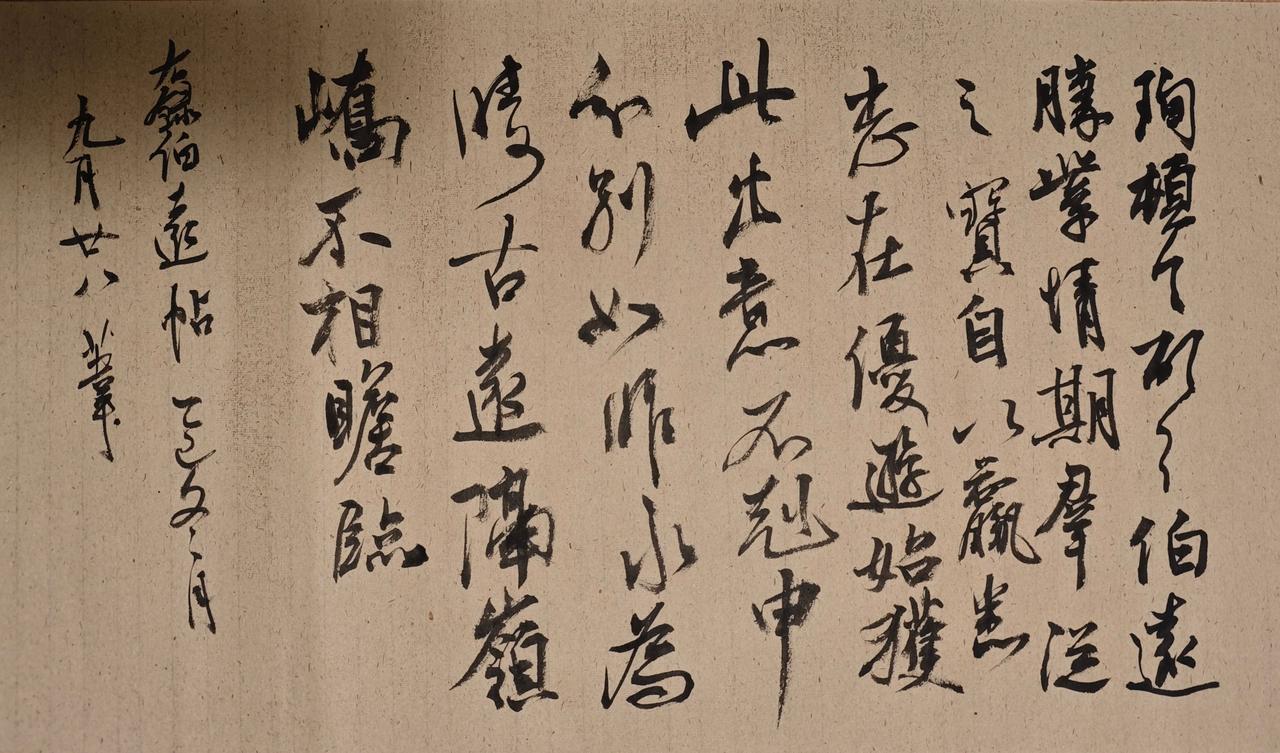 珣頓首頓首伯遠
勝業情期羣從
之寶自以羸患
志在優遊始獲
此出意不剋申
分別如昨永為
疇古遠隔嶺
嶠不相瞻臨
伯遠帖 乙巳冬月
九月廿八